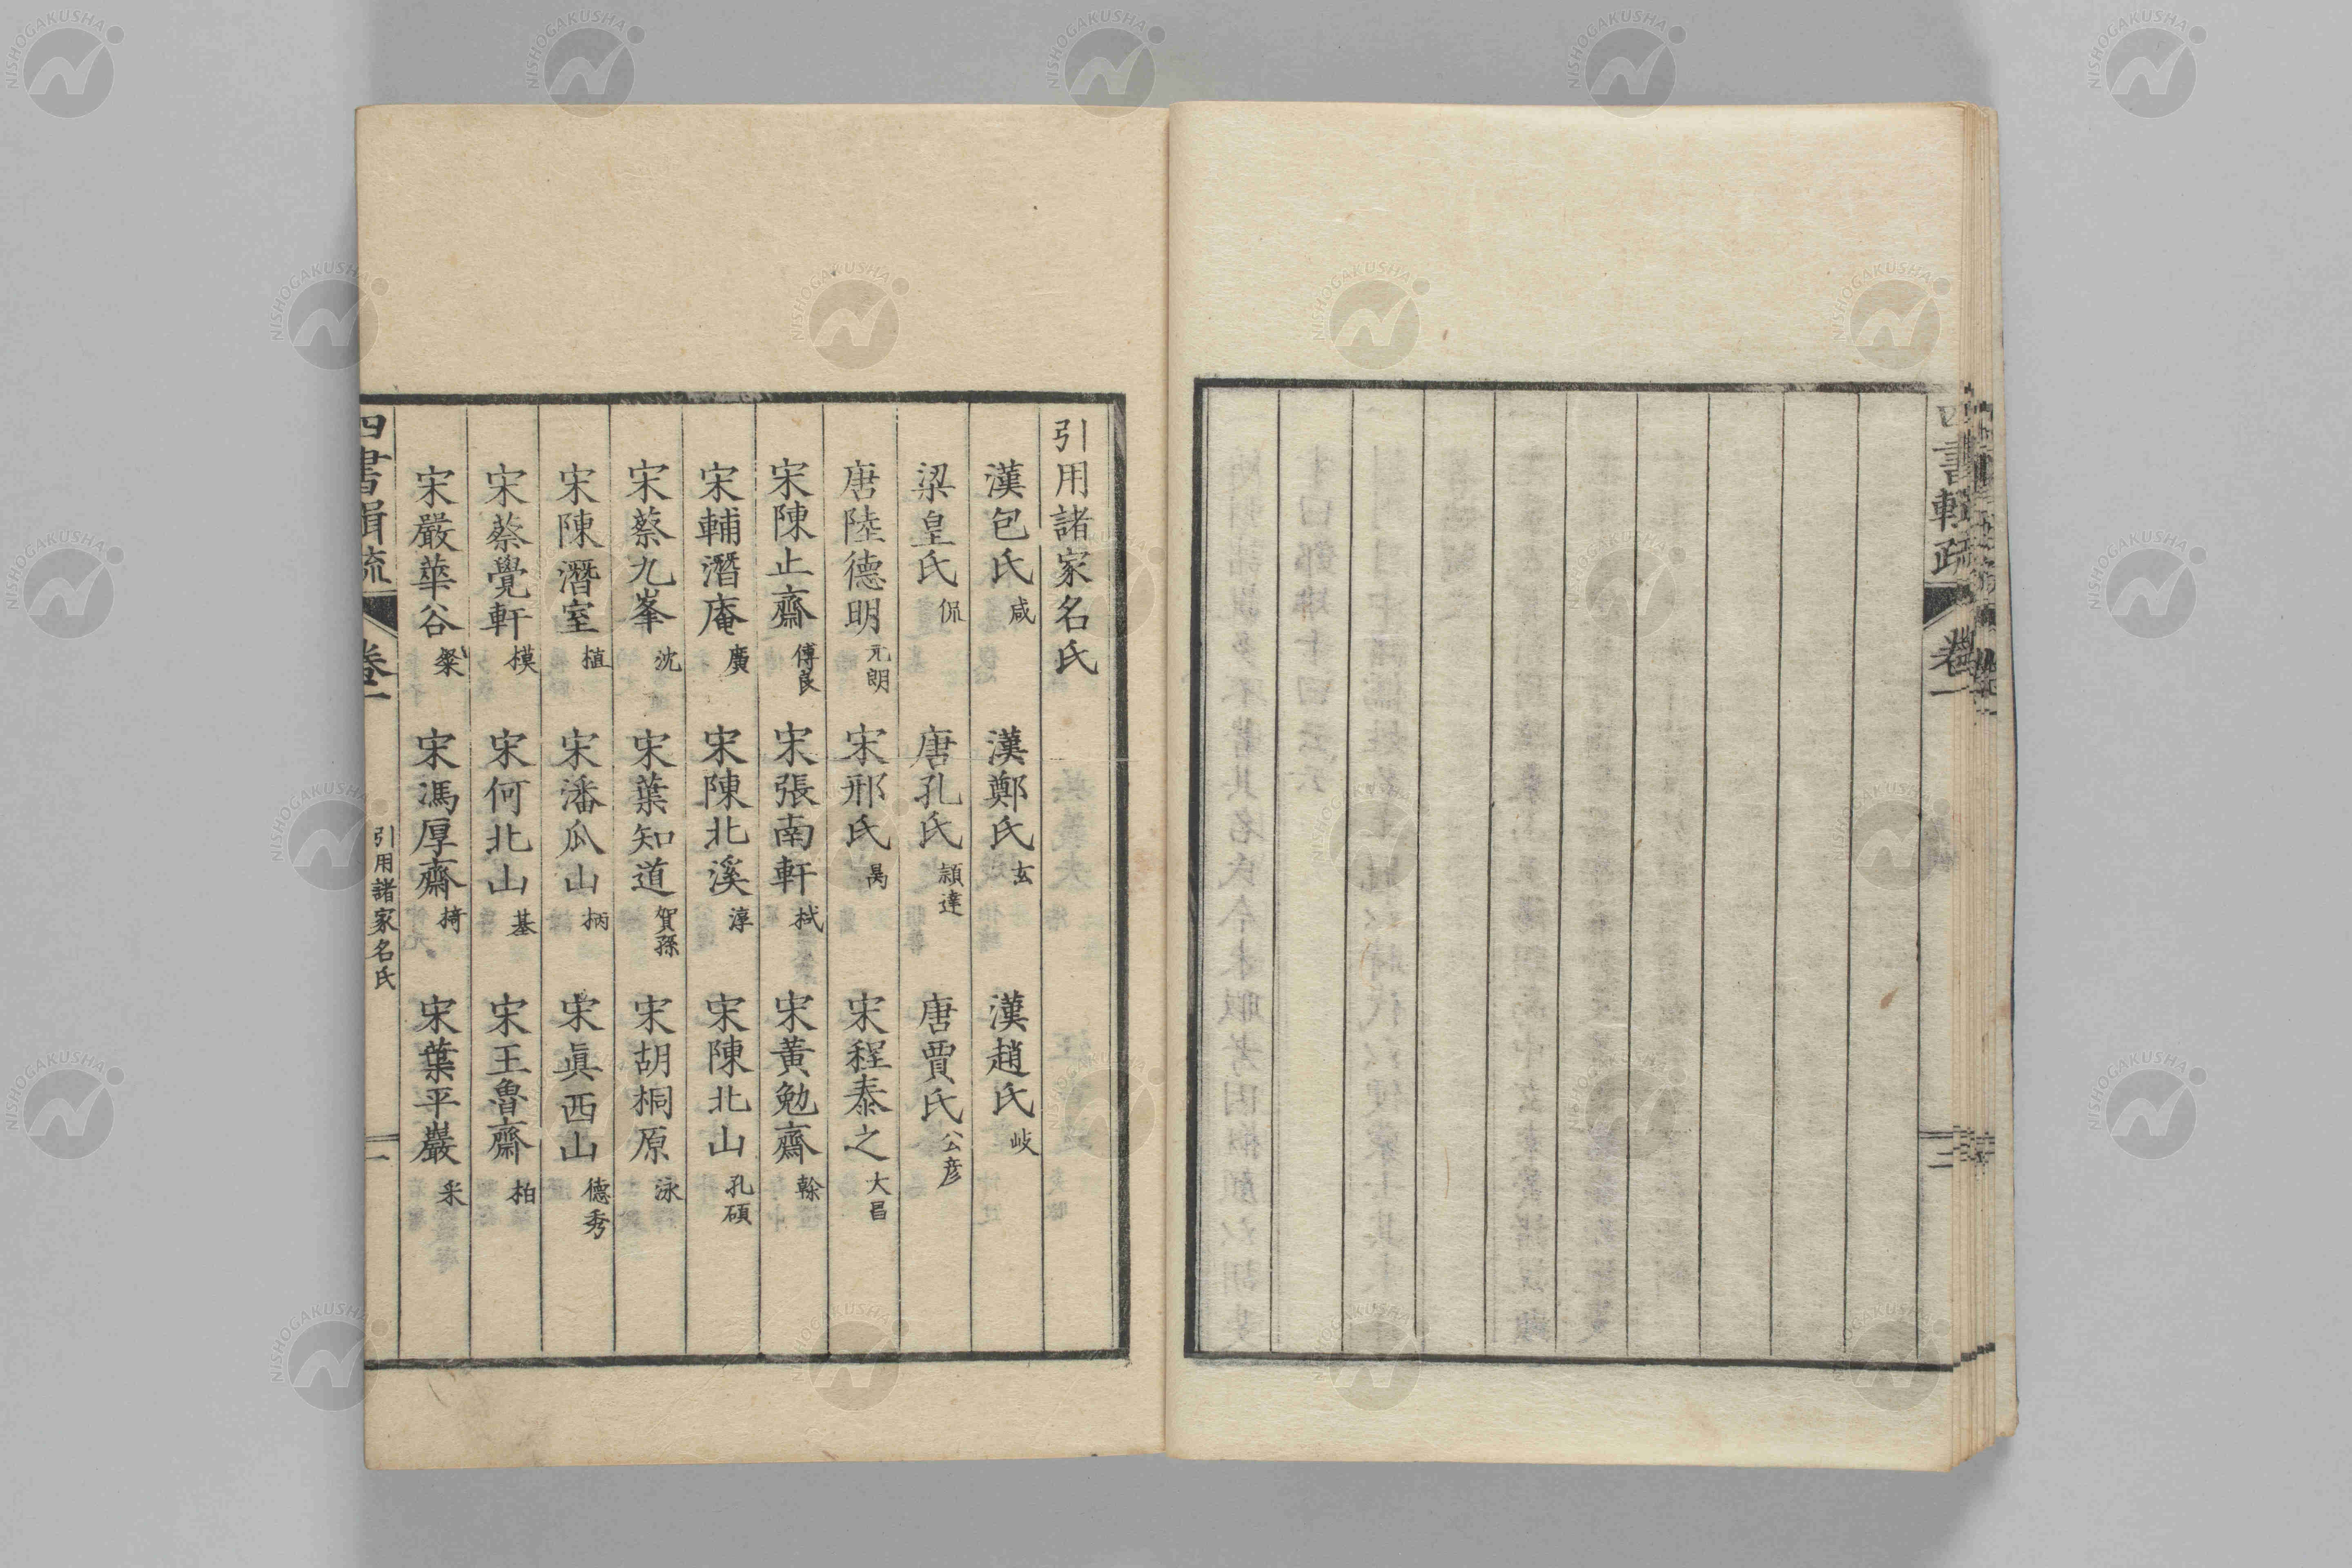 四書輯疏 卷一 三
引用諸家名氏
漢包氏咸 漢鄭氏玄 漢趙氏岐
梁皇氏侃 唐孔氏穎達 唐賈氏公彥
唐陸德明元朗 宋邢氏昺 宋程泰之大昌
宋陳止齋傅良 宋張南軒栻 宋黃勉齋榦
宋輔潛庵廣 宋陳北溪淳 宋陳北山孔碩
宋蔡九峯沈 宋葉知道賀孫 宋胡桐原泳
宋陳潛室植 宋潘瓜山柄 宋眞西山德秀
宋蔡覺軒模 宋何北山基 宋王魯齋柏
宋嚴華谷粲 宋馮厚齋椅 宋葉平巖采
四書輯疏 卷一 引用諸家名氏 一
NISHOGAKUSHA